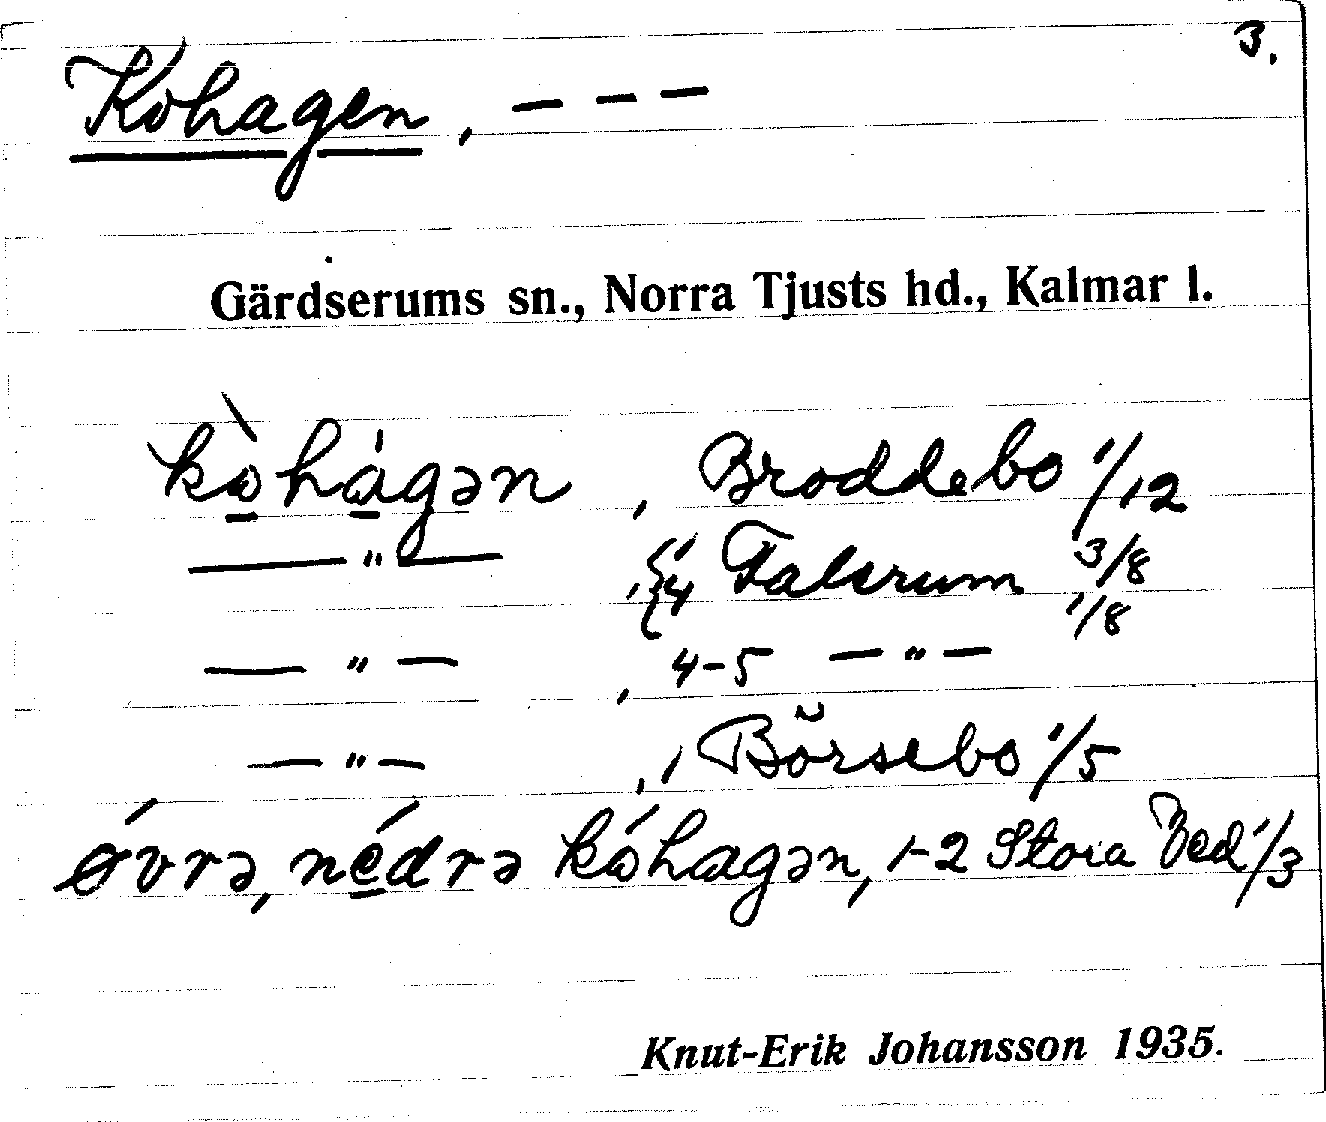 3.
Kohagen, – – –
Gärdserums sn., Norra Tjusts hd., Kalmar l.
kòhágən, Broddebo 1/12
— " —, { 1 4 Falerum 3/8 1/8
— " —, 4-5 — " —
— " —, 1 Börsebo 1/5
óvrə, nédrə kóhagən, 1-2 Stora Ved 1/3
Knut-Erik Johansson 1935.